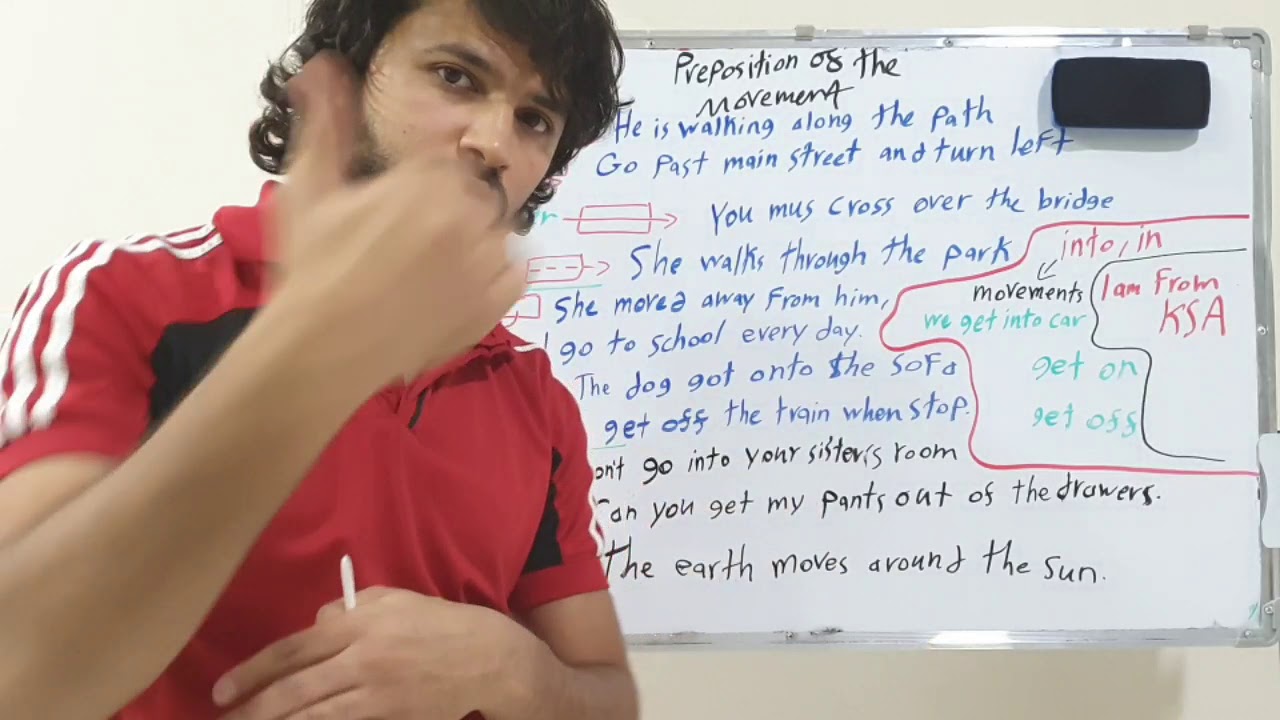 Preposition of the
movement
He is walking along the path
Go past main street and turn left
You mus cross over the bridge
She walks through the park
She moved away from him,
I go to school every day.
The dog got onto the sofa
get off the train when stop.
on't go into your sister's room
an you get my pants out of the drawers.
The earth moves around the sun.
into, in
movements
we get into car
get on
get off
I am from
KSA